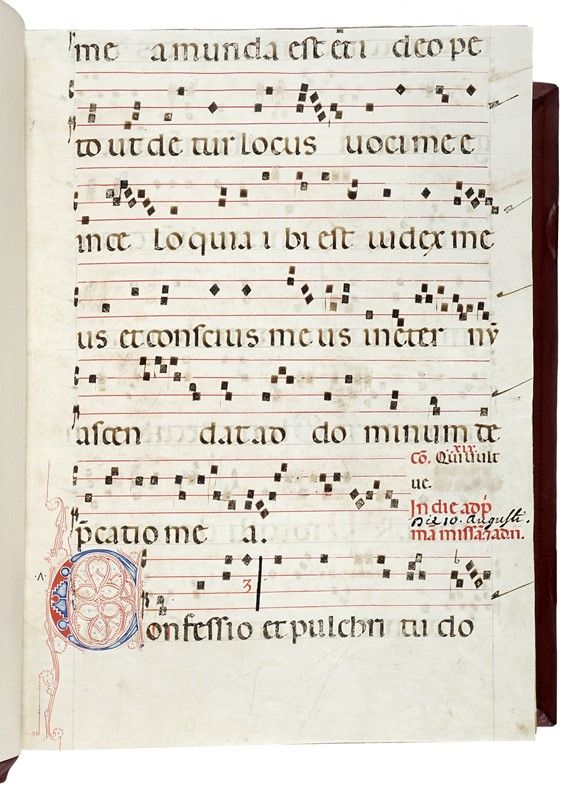 me a munda est ēt i deo pe
to ut de tur locus uoci me e
in ce lo quia i bi est iudex me
us et conscius me us in eter nȳ
ascen dat ad do minum de
xix
Cō. Qui uult
ue.
In die ad p̄
Die 10. Augusti.
p̄catio me a.
3
Confessio et pulchri tu do